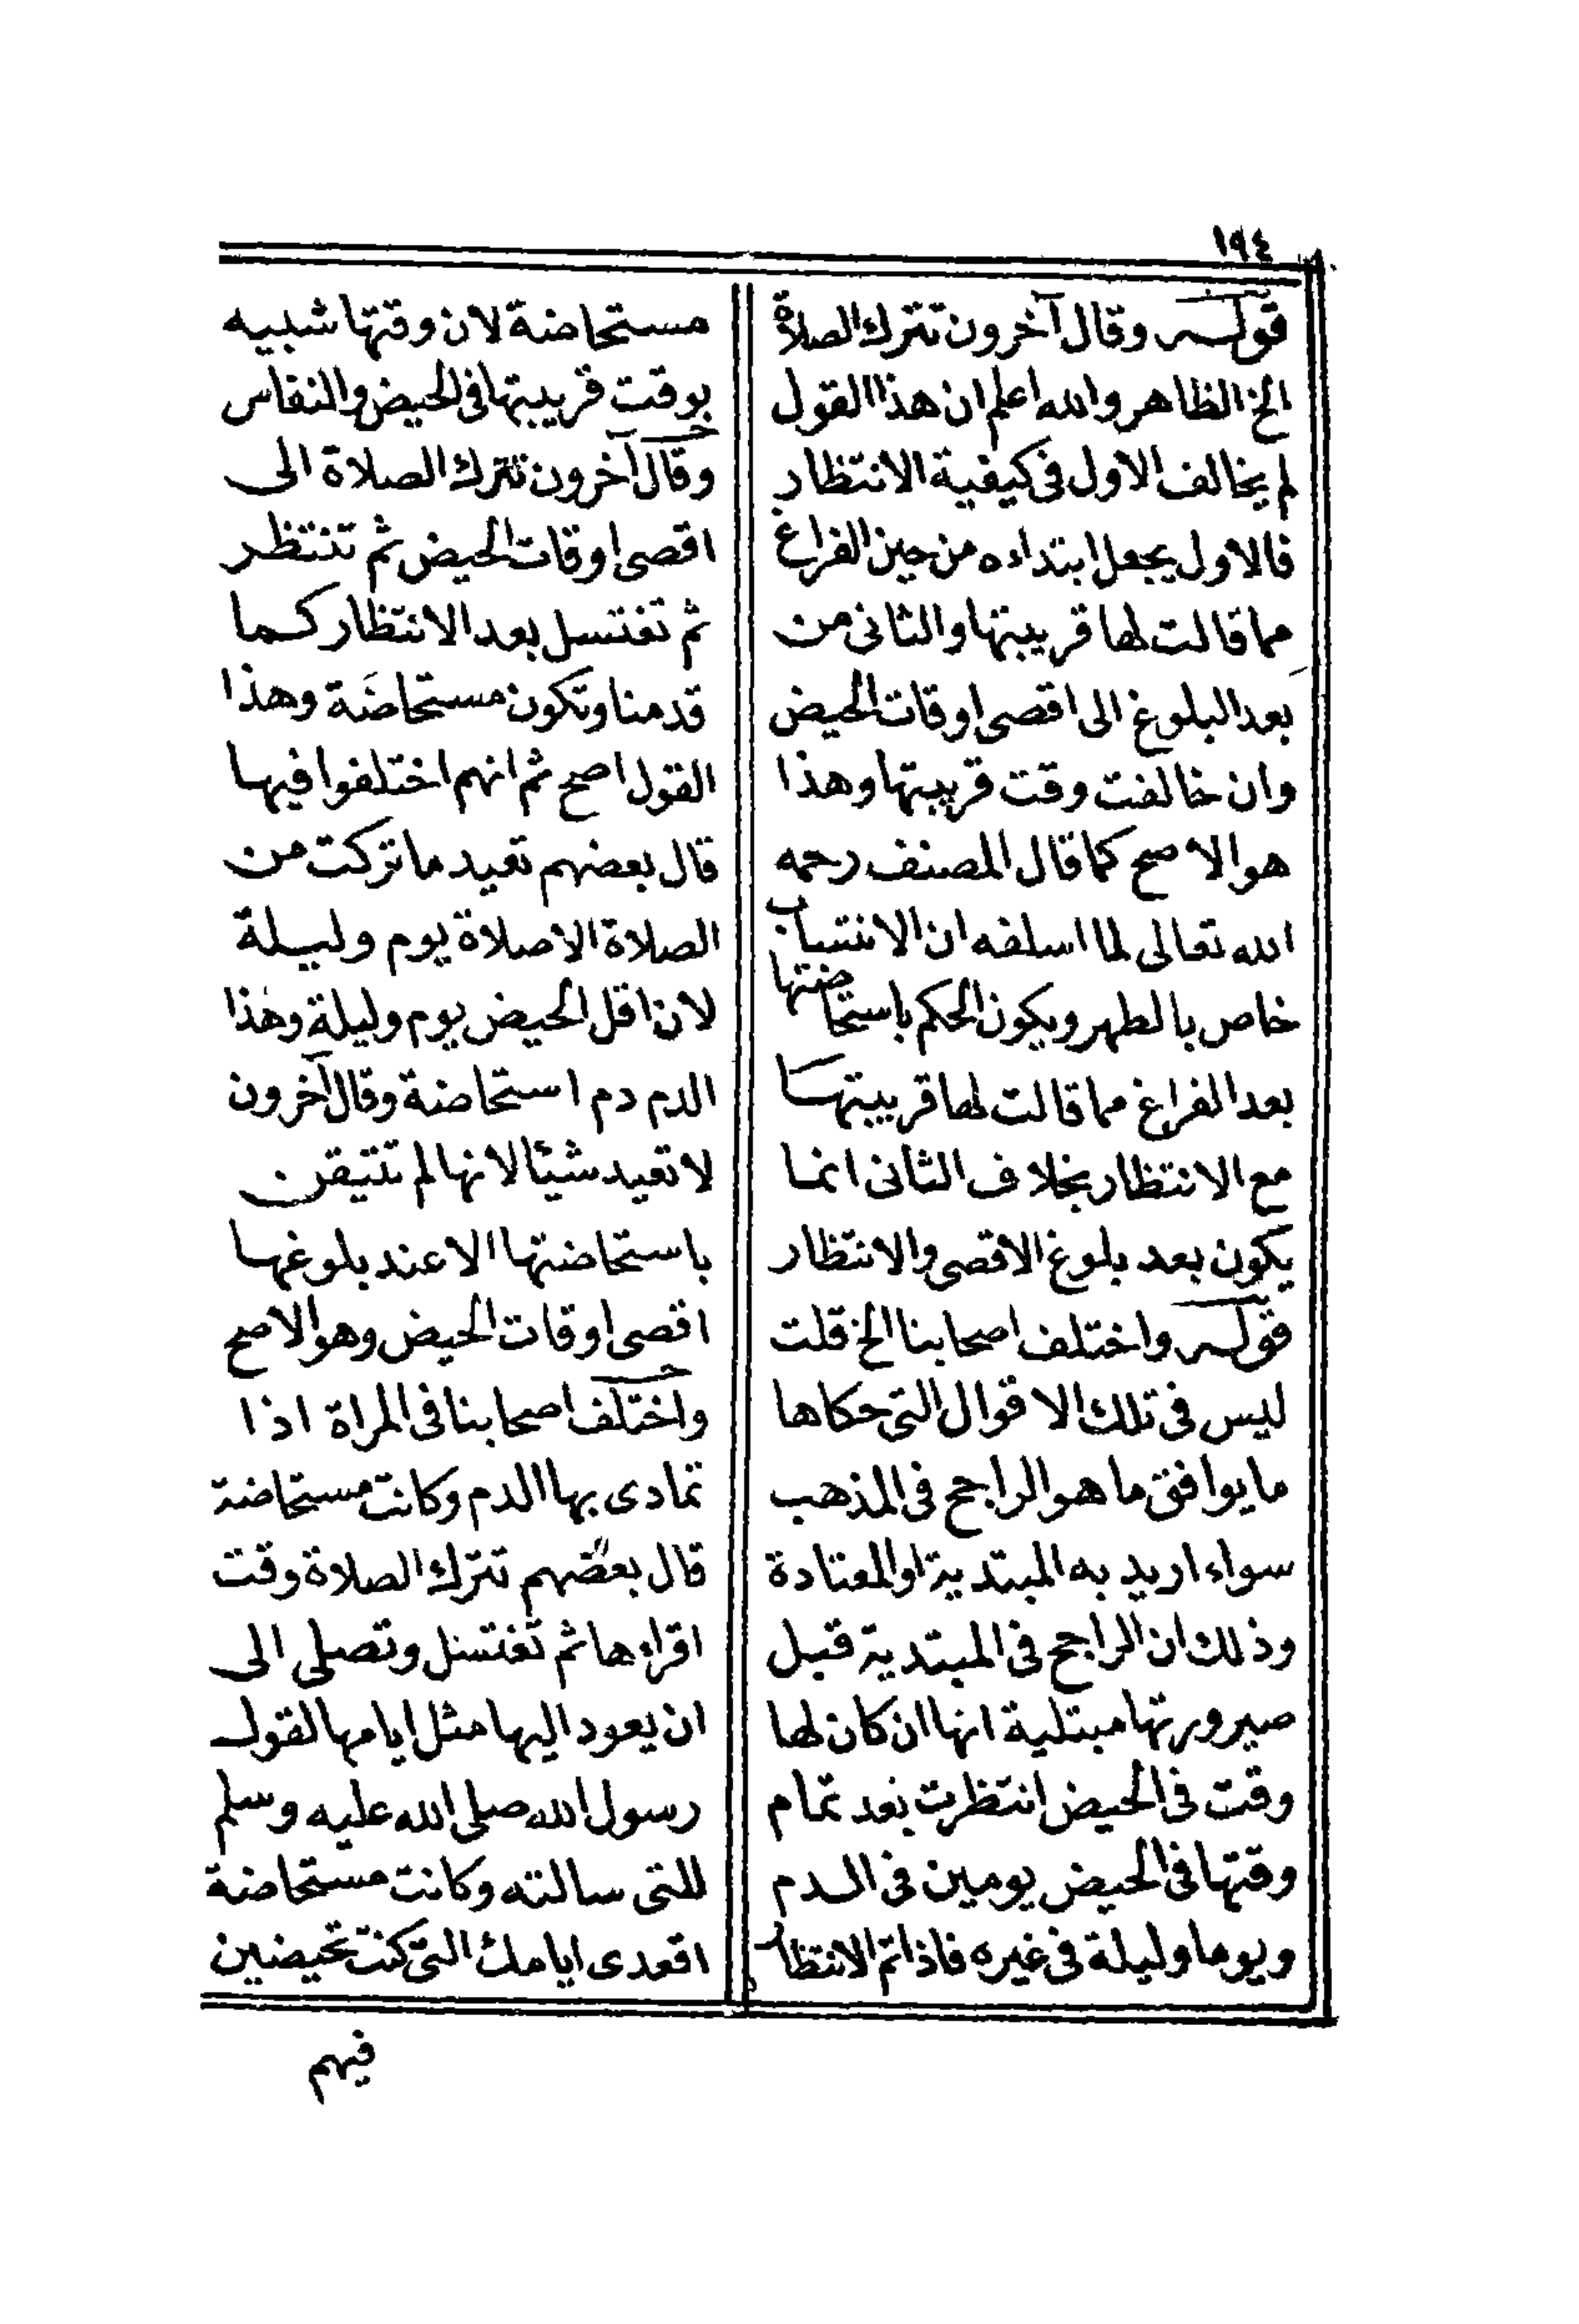 ١٩٤
قوله وقال آخرون تترك الصلاة
الخ الظاهر والله اعلم ان هذا القول
لم يخالف الاول فى كيفية الانتظار
فالاول يجعل ابتداءه من حين الفراغ
مما قالت لها قريبتها والثانى من
بعد البلوغ الى اقصى اوقات الحيض
وان خالفت وقت قريبتها وهذا
هو الاصح كما قال المصنف رحمه
الله تعالى لما اسلفه ان الانتساب
خاص بالطهر ويكون الحكم باستحاضتها
بعد الفراغ مما قالت لها قريبتها
مع الانتظار بخلاف الثانى انما
يكون بعد بلوغ الاقصى والانتظار
قوله واختلف اصحابنا الخ قلت
ليس فى تلك الاقوال التى حكاها
ما يوافق ما هو الراجح فى المذهب
سواء اريد به المبتدية او المعتادة
وذلك ان الراجح فى المبتدية قبل
صيرورتها مبتلية انها ان كان لها
وقت فى الحيض انتظرت بعد تمام
وقتها فى الحيض يومين فى الدم
ويوما وليلة فى غيره فاذا تم الانتظار
مستحاضة لان وقتها شبيه
بوقت قريبتها فى الحيض والنفاس
وقال آخرون تترك الصلاة الى
اقصى اوقات الحيض ثم تنتظر
ثم تغتسل بعد الانتظار كما
قدمنا وتكون مستحاضة وهذا
القول اصح ثم انهم اختلفوا فيها
قال بعضهم تعيد ما تركت من
الصلاة الا صلاة يوم وليلة
لان اقل الحيض يوم وليلة وهذا
الدم دم استحاضة وقال آخرون
لا تعيد شيئا لانها لم تتيقن
باستحاضتها الا عند بلوغها
اقصى اوقات الحيض وهو الاصح
واختلف اصحابنا فى المراة اذا
تمادى بها الدم وكانت مستحاضة
قال بعضهم تترك الصلاة وقت
اقراءها ثم تغتسل وتصلى الى
ان يعود اليها مثل ايامها لقول
رسول الله صلى الله عليه وسلم
للتى سالته وكانت مستحاضة
اقعدى ايامك التى كنت تحيضين
فيهم